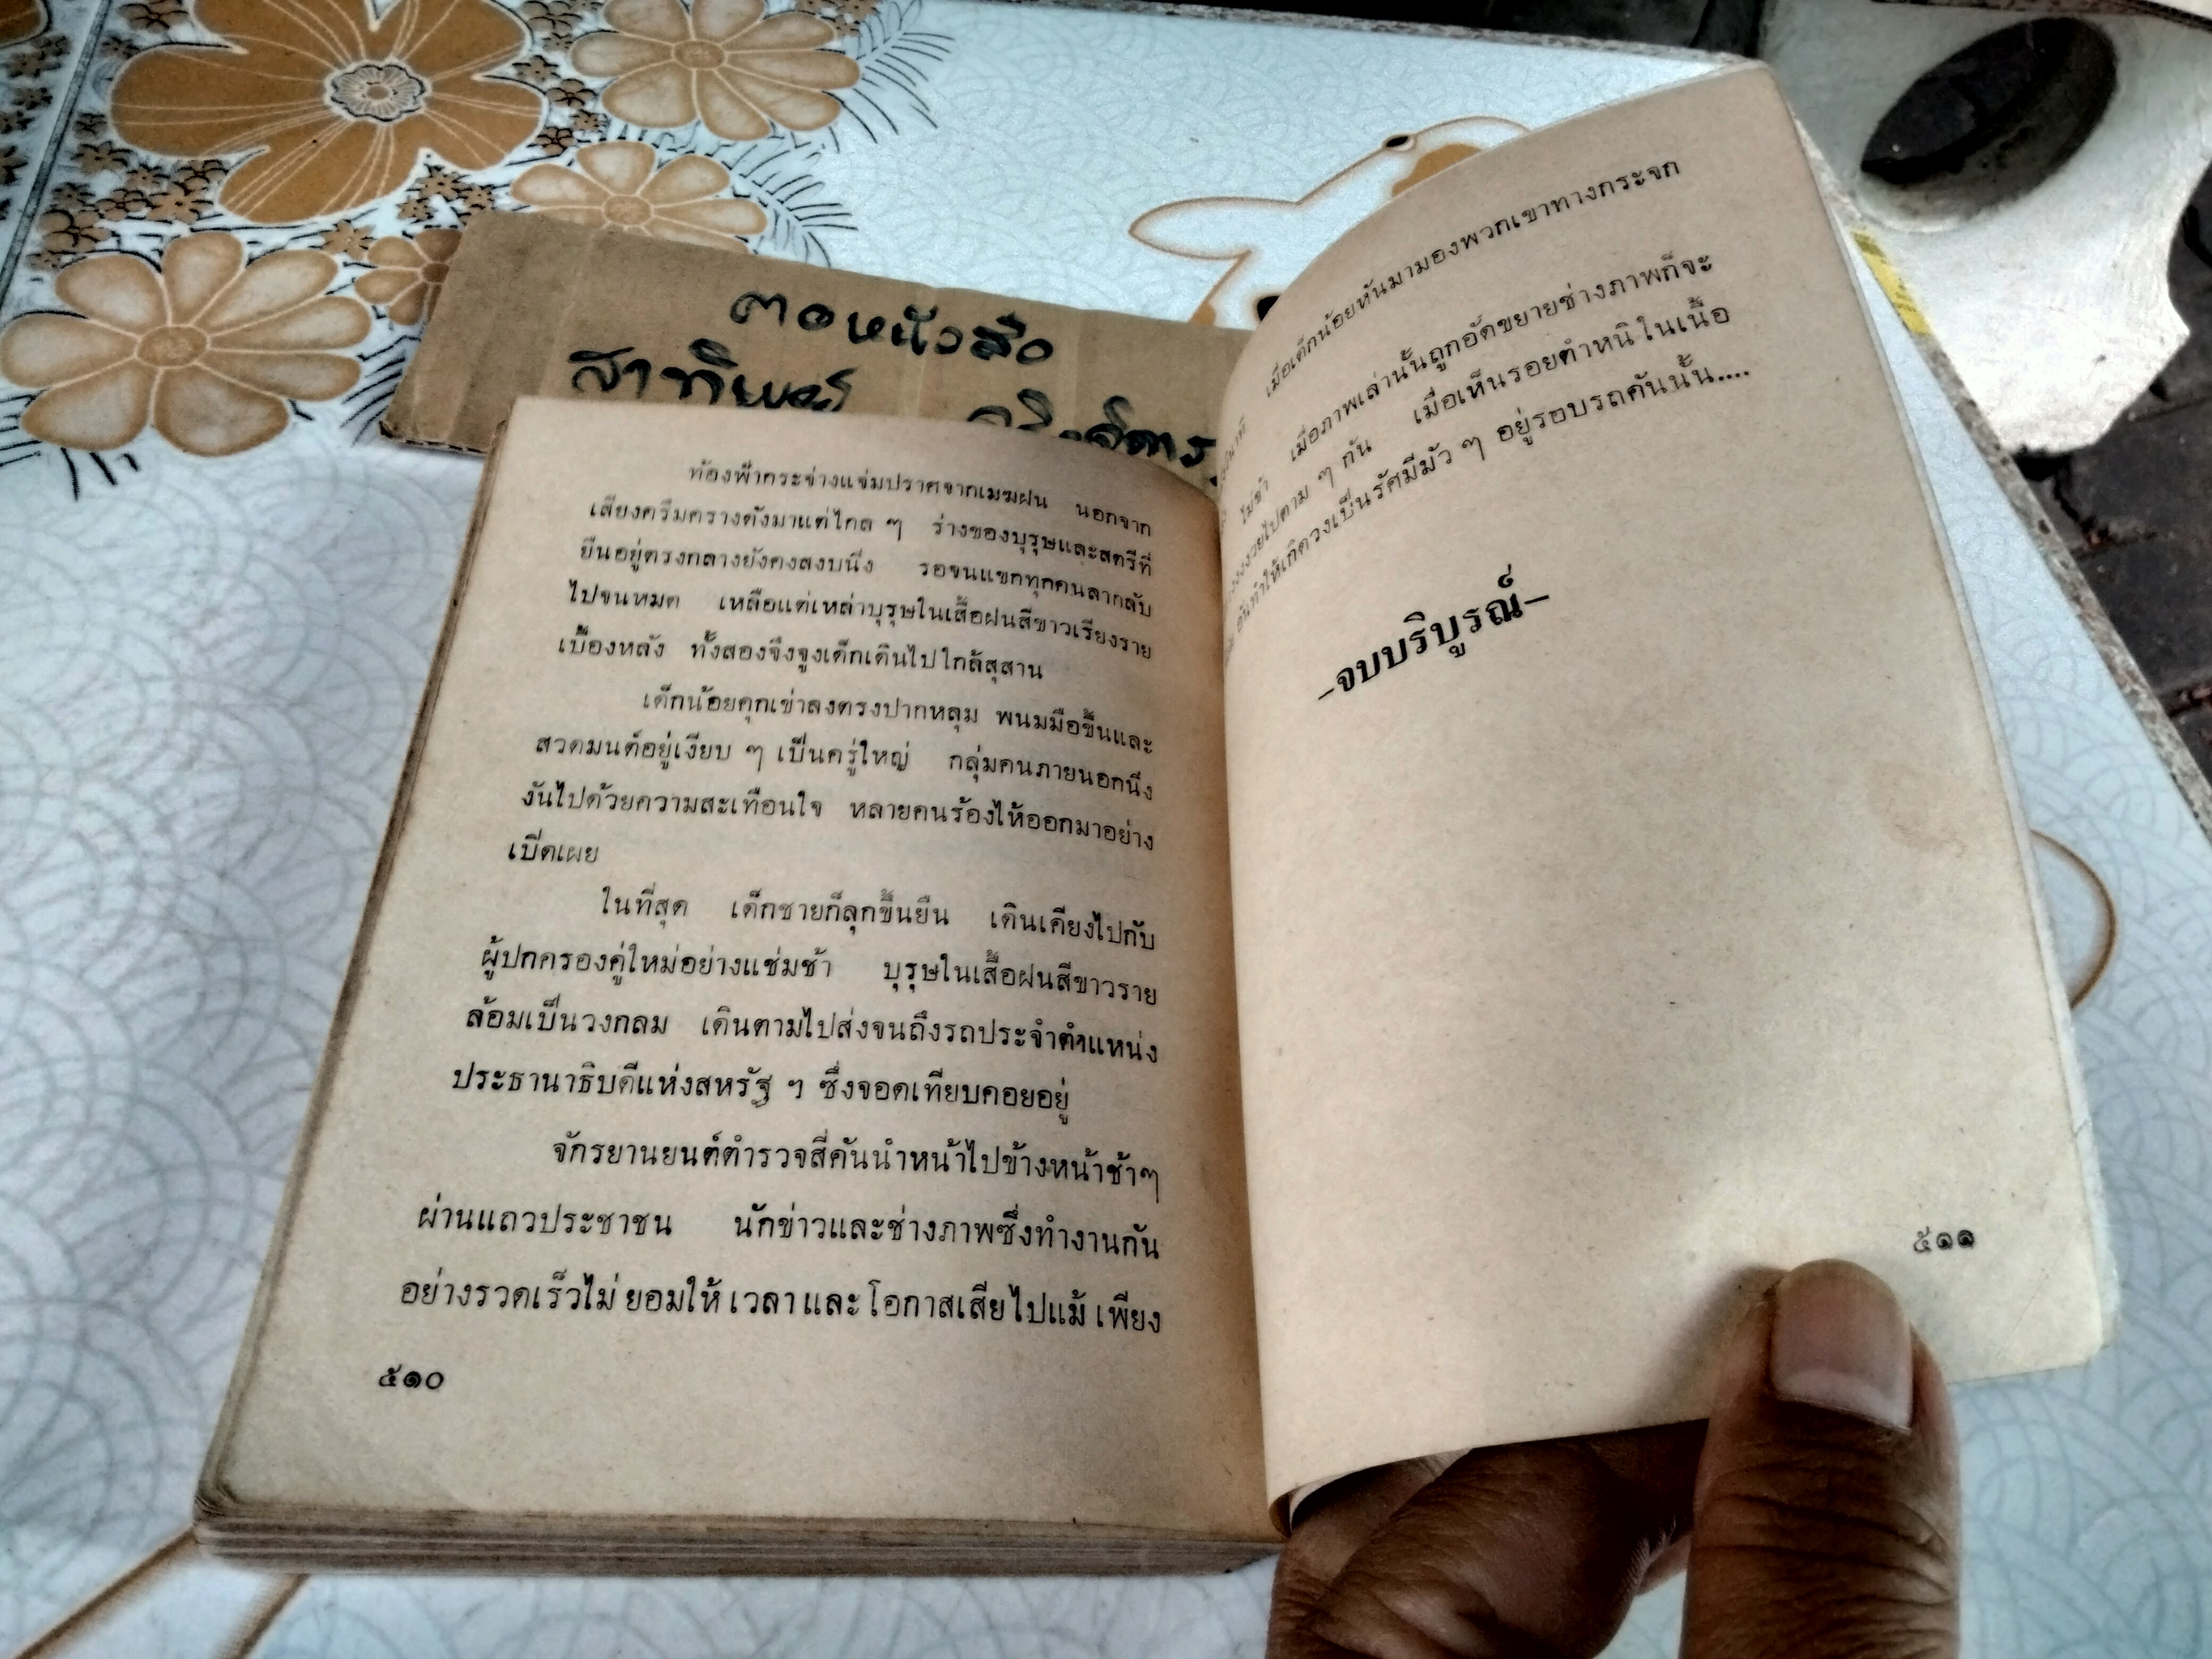 ตอหนังสือ
สาทิพย์
ท้องฟ้ากระจ่างแจ่มปราศจากเมฆฝน นอกจาก
เสียงครึมครางดังมาแต่ไกล ๆ ร่างของบุรุษและสตรีที่
ยืนอยู่ตรงกลางยังคงสงบนิ่ง รอจนแขกทุกคนลากลับ
ไปจนหมด เหลือแต่เหล่าบุรุษในเสื้อฝนสีขาวเรียงราย
เบื้องหลัง ทั้งสองจึงจูงเด็กเดินไปใกล้สุสาน
เด็กน้อยคุกเข่าลงตรงปากหลุม พนมมือขึ้นและ
สวดมนต์อยู่เงียบ ๆ เป็นครู่ใหญ่ กลุ่มคนภายนอกนิ่ง
งันไปด้วยความสะเทือนใจ หลายคนร้องไห้ออกมาอย่าง
เปิดเผย
ในที่สุด เด็กชายก็ลุกขึ้นยืน เดินเคียงไปกับ
ผู้ปกครองคู่ใหม่อย่างแช่มช้า บุรุษในเสื้อฝนสีขาวราย
ล้อมเป็นวงกลม เดินตามไปส่งจนถึงรถประจำตำแหน่ง
ประธานาธิบดีแห่งสหรัฐ ๆ ซึ่งจอดเทียบคอยอยู่
จักรยานยนต์ตำรวจสี่คันนำหน้าไปข้างหน้าช้าๆ
ผ่านแถวประชาชน นักข่าวและช่างภาพซึ่งทำงานกัน
อย่างรวดเร็วไม่ยอมให้เวลาและโอกาสเสียไปแม้เพียง
๕๑๐
เมื่อเด็กน้อยหันมามองพวกเขาทางกระจก
ไม่ช้า เมื่อภาพเล่านั้นถูกอัดขยายช่างภาพก็จะ
งงงวยไปตาม ๆ กัน เมื่อเห็นรอยตำหนิในเนื้อ
อันทำให้เกิดวงเป็นรัศมีมัว ๆ อยู่รอบรถคันนั้น....
–จบบริบูรณ์–
๕๑๑